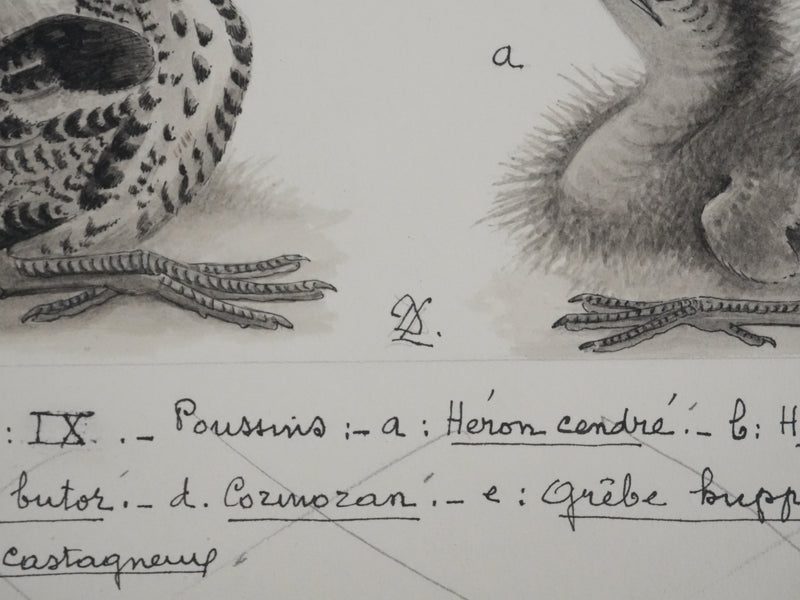 a
: IX. - Poussins :- a : Héron cendré.- b : H
butor.- d. Cormoran.- e : Grêbe hupp
castagneux